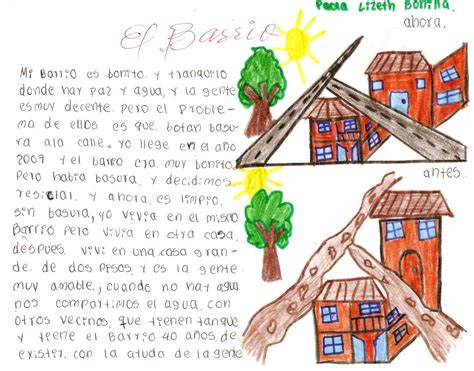 Paola Lizeth Bonilla.
El Barrio
ahora.
Mi Barrio es bonito. y tranquilo
donde hay paz y agua, y la gente
es muy decente. pero el proble-
ma de ellos es que botan basu-
ra ala calle. yo llege en el año
2009 y el barrio era muy bonita.
pero habia basura, y decidimos
resiclar. y ahora, es limpio,
sin basura, yo vivia en el mismo
Barrio pero vivia en otra casa,
despues. vivi en una casa gran-
de. de dos pisos, y es la gente
muy amable, cuando no hay agua
nos compartimos el agua, con
otros vecinos, que tienen tanque
y tiene el Barrio 40 años de.
existir. con la ayuda de la gente
antes.